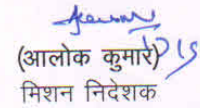 (आलोक कुमार)
मिशन निदेशक